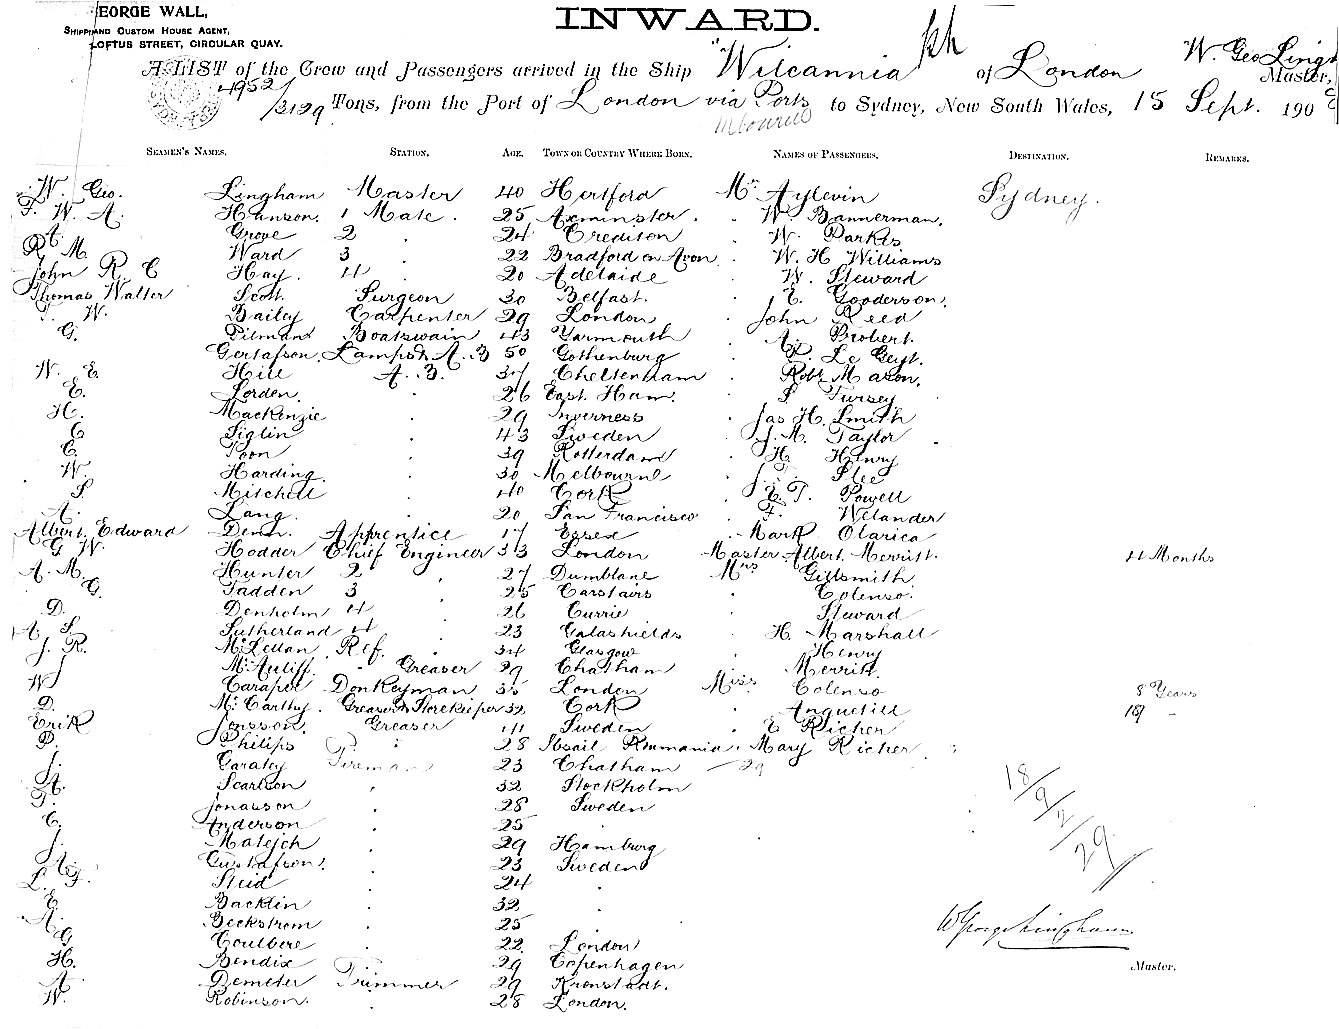 EORGE WALL,
SHIPPI AND CUSTOM HOUSE AGENT,
LOFTUS STREET, CIRCULAR QUAY.
INWARD.
A LIST of the Crew and Passengers arrived in the Ship "Wilcannia of London W. Geo Lingh Master,
4952/3129 Tons, from the Port of London via Ports to Sydney, New South Wales, 15 Sept. 190
SEAMEN'S NAMES. STATION. AGE. TOWN OR COUNTRY WHERE BORN. NAMES OF PASSENGERS. DESTINATION. REMARKS.
W. Geo. Lingham Master 40 Hertford Mr Aylevin Sydney.
F. W. A. Hanson. 1 Mate. 25 Axminster. W. Bannerman.
A. Grove 2 24 Crediton W. Parkes
R M. Ward 3 22 Bradford on Avon W. H Williams
John R. C Hay. 4 20 Adelaide W. Steward
Thomas Walter Scott. Surgeon 30 Belfast. E. Gooderson.
T. W. Bailey Carpenter 29 London John Reed
G. Pitman Boatswain 43 Yarmouth A. Probert.
Gustafson. Lamps & A. B 50 Gothenburg Le Geyt.
W. E. Hill A. B. 37 Cheltenham Robt Mason.
E. Lorden. 26 East Ham. S Tursey
H. Mackenzie 29 Inverness Jas H. Smith
C Siglin 43 Sweden J. M. Taylor
E. Poon 39 Rotterdam H. Henry
W. Harding. 30 Melbourne J. Slee
S. Mitchell 40 Cork E T. Powell
A. Lang. 20 San Francisco F. Welander
Albert Edward Denn. Apprentice 17 Essex Mark Olarica
G W. Hodder Chief Engineer 33 London Master Albert Merritt. 11 Months
A. M. Hunter 2 27 Dumblane Mrs Gillsmith
G. Fadden 3 25 Carstairs Colenso.
D. Denholm 4 26 Currie Steward
A. S. Sutherland 4 23 Galashields H. Marshall
J. R. McLellan Ref. 34 Glasgow Henry
J McAuliff. Greaser 29 Chatham Merritt.
W Carapet Donkeyman 35 London Miss Colenso 8 Years
D. McCarthy. Greaser & Storekeeper 32 Cork Anquetill 187 "
Erik Jonsson. Greaser 41 Sweden E Richer
P. Philips " 28 Ibrail Roumania. Mary Richer
J. Garatey Fireman 23 Chatham 29
A. Scarlson 32 Stockholm
T. Jonasson 28 Sweden
C. Anderson 25
J. Matejch 29 Hamburg
A. Gustafson. 23 Sweden
L. F. Steid 24
E. Backlin 32
A. Beckstrom 25
G Coulbere 22 London
H. Bendix 29 Copenhagen
A. Demeter Trimmer 29 Kronstadt.
W. Robinson. 28 London.
18/9/2/29
W George Lingham
Master.